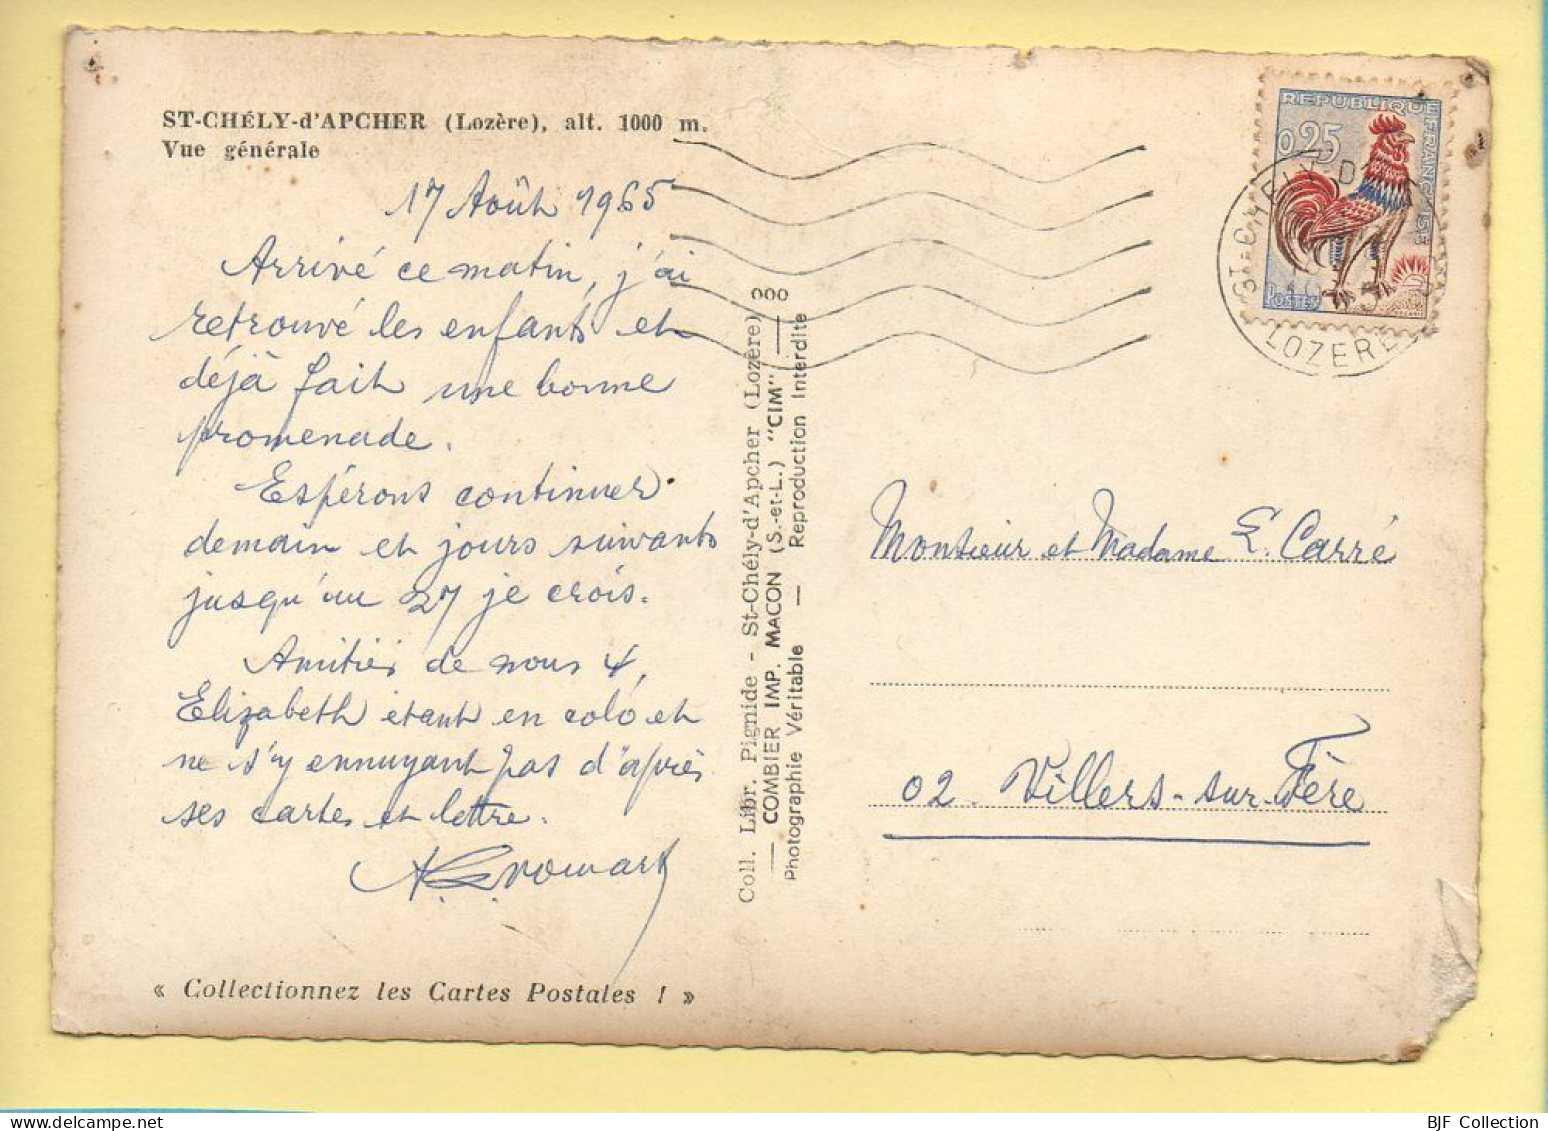 ST-CHÉLY-d'APCHER (Lozère), alt. 1000 m.
Vue générale
17 Août 1965
Arrivé ce matin, j'ai
retrouvé les enfants et
déjà fait une bonne
promenade.
Espérons continuer
demain et jours suivants
jusqu'au 27 je crois.
Amitiés de nous 4,
Elizabeth étant en colo et
ne s'y ennuyant pas d'après
ses cartes et lettre.
« Collectionnez les Cartes Postales ! »
Coll. Libr. Pignide - St-Chély-d'Apcher (Lozère)
— COMBIER IMP. MACON (S.-et-L.) "CIM" —
Photographie Véritable — Reproduction Interdite
REPUBLIQUE FRANÇAISE
0,25
POSTES
LOZERE
Monsieur et Madame E. Carré
02. Villers-sur-Fère
BJF Collection